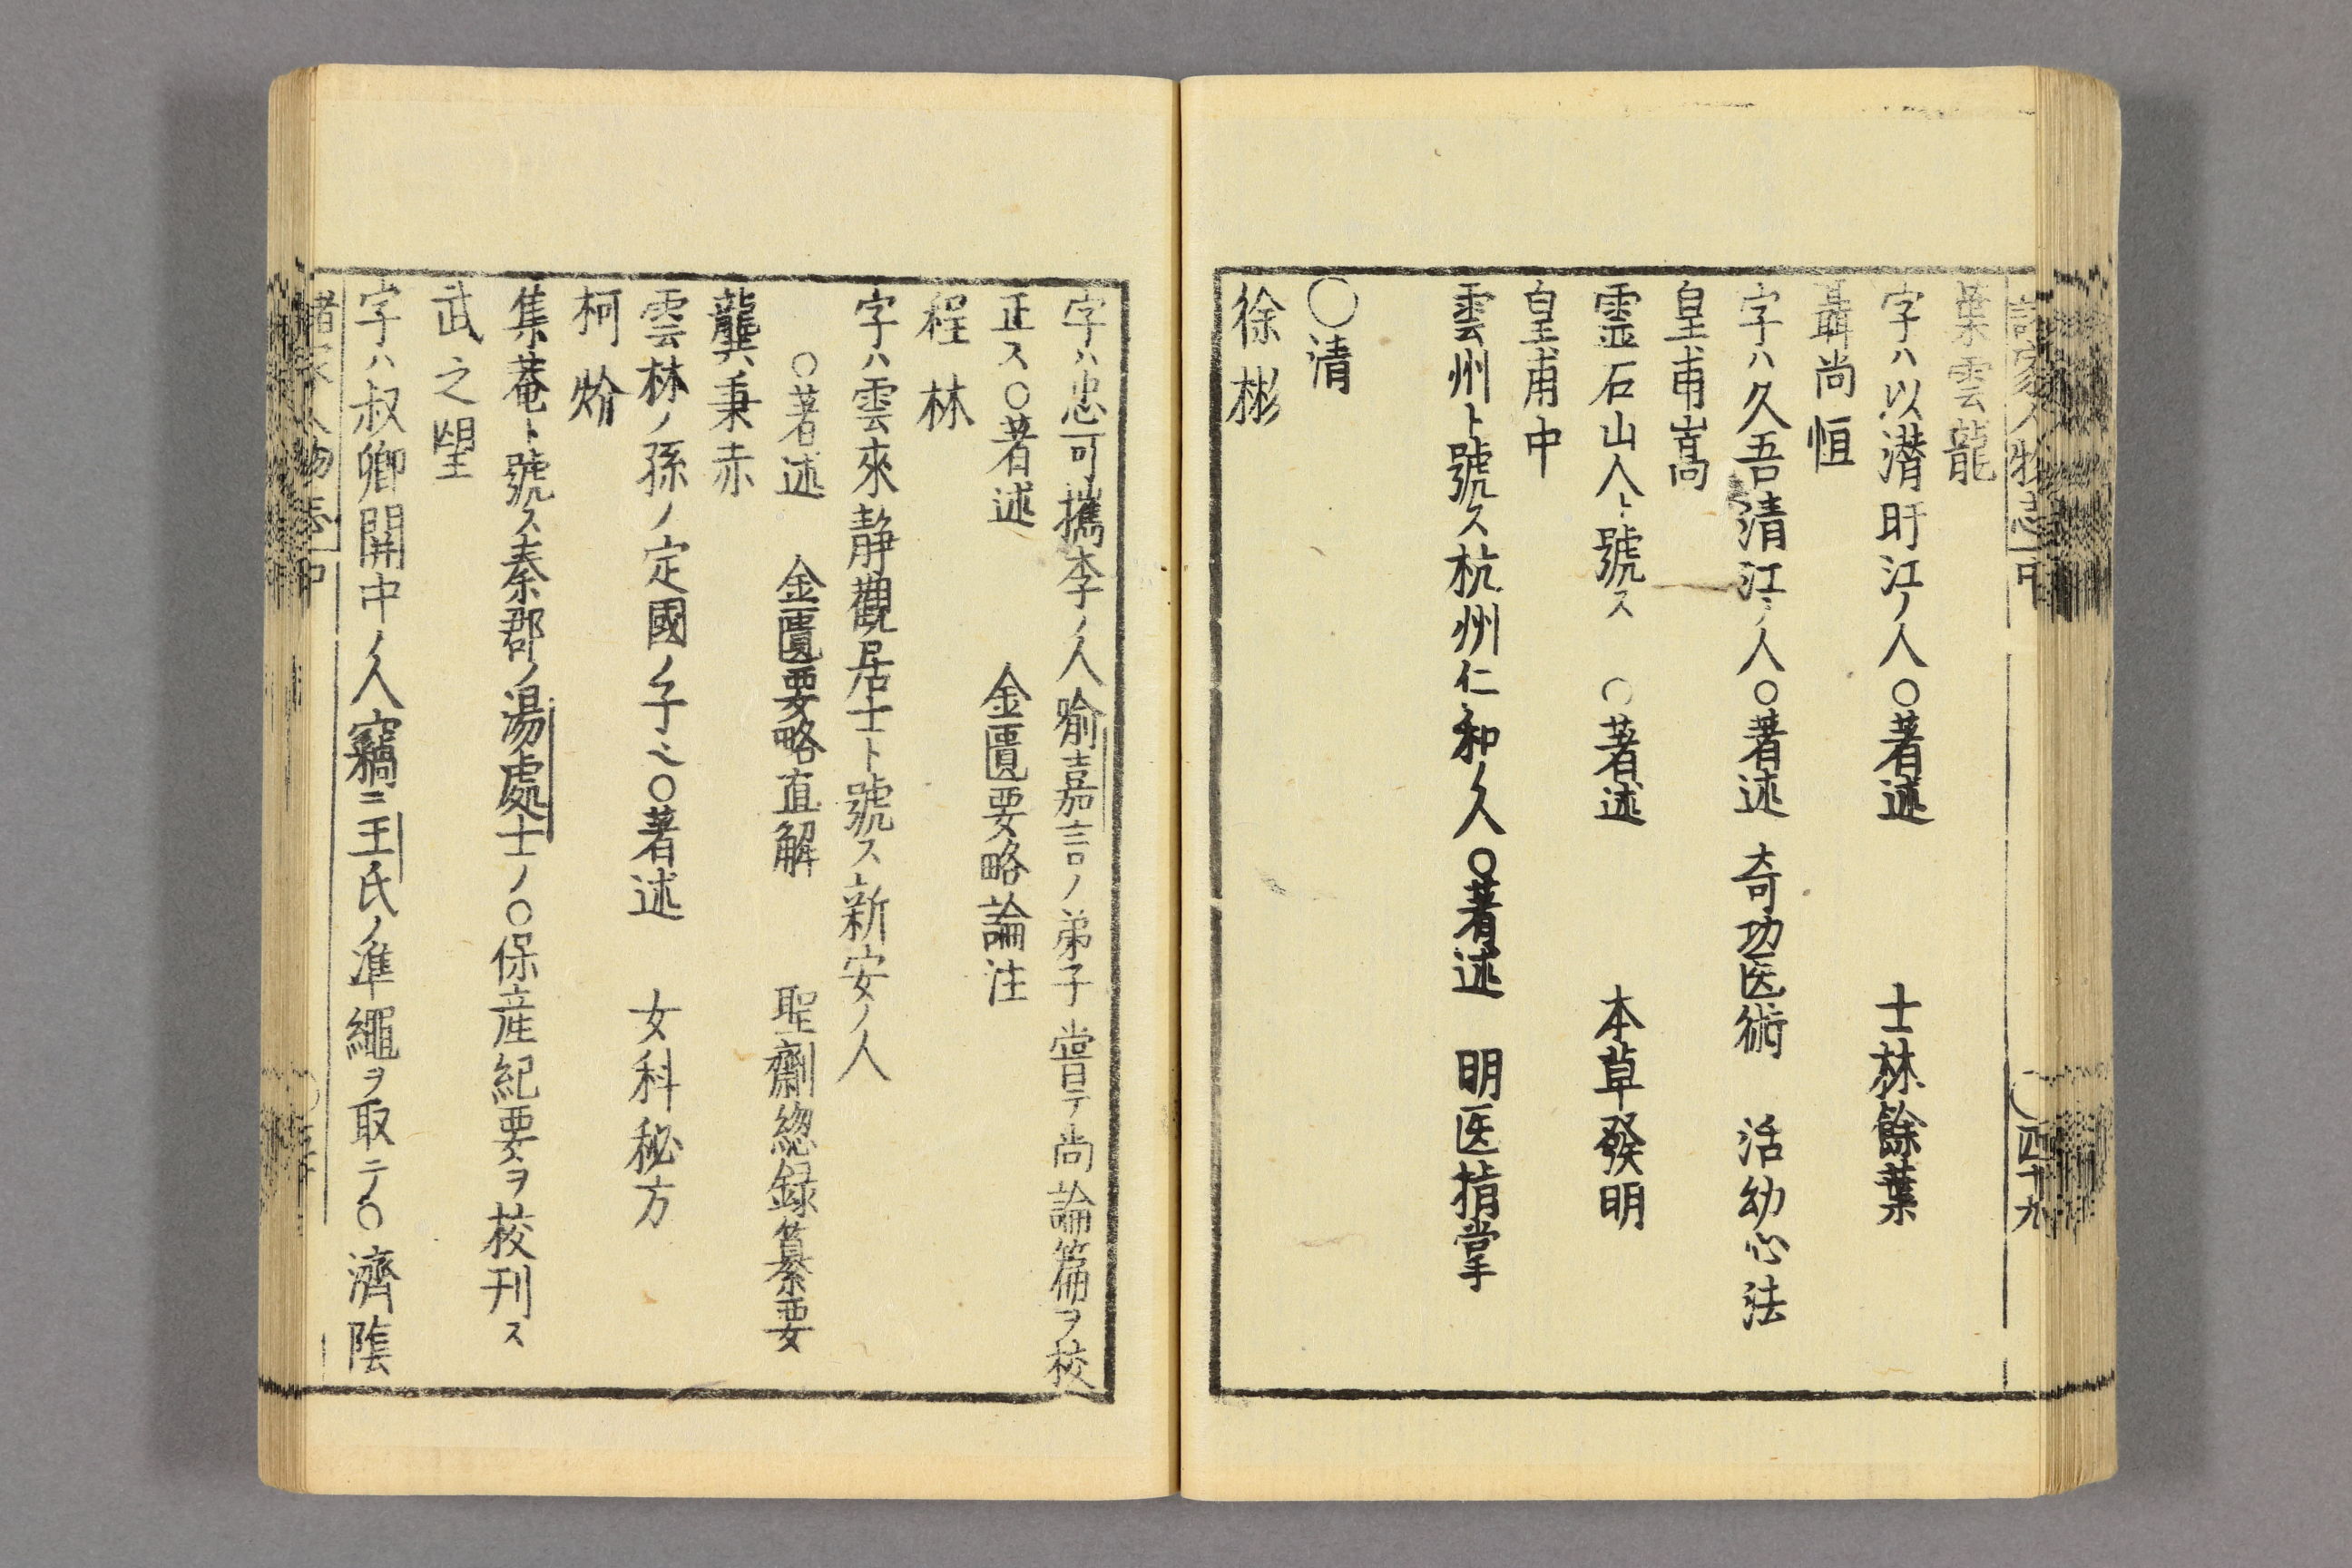 諸家人物志 中 四十九
巣雲龍
字ハ以潜盱江ノ人○著述 士林餘業
聶尚恒
字ハ久吾清江ノ人○著述 奇功医術 活幼心法
皇甫嵩
霊石山人ト號ス ○著述 本草發明
皇甫中
雲州ト號ス杭州仁和ノ人○著述 明医指掌
○清
徐彬
字ハ忠可攜李ノ人喻嘉言ノ弟子甞テ尚論篇ヲ校
正ス○著述 金匱要略論注
程林
字ハ雲來静觀居士ト號ス新安ノ人
○著述 金匱要略直解 聖齋縂録纂要
龔秉赤
雲林ノ孫ノ定國ノ子也○著述 女科秘方
柯炌
集菴ト號ス秦郡ノ湯處士ノ○保産紀要ヲ校刊ス
武之望
字ハ叔卿開中ノ人竊ニ王氏ノ準繩ヲ取テ○濟隂
諸家人物志 中